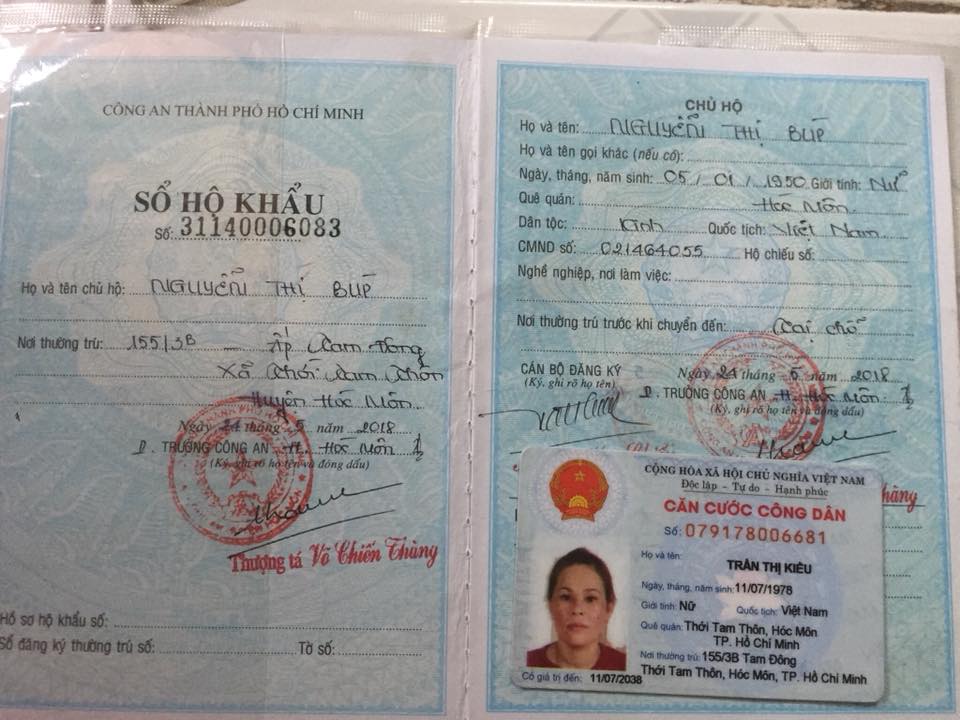 CÔNG AN THÀNH PHỐ HỒ CHÍ MINH
SỔ HỘ KHẨU
Số: 31140006083
Họ và tên chủ hộ: NGUYỄN THỊ BÚP
Nơi thường trú: 155/3B - Ấp Tam Đông
Xã Thới Tam Thôn
Huyện Hóc Môn
Ngày 24 tháng 5 năm 2018
TRƯỞNG CÔNG AN H. Hóc Môn
(Ký, ghi rõ họ tên và đóng dấu)
Thượng tá Võ Chiến Thắng
Hồ sơ hộ khẩu số:
Sổ đăng ký thường trú số: Tờ số:
CHỦ HỘ
Họ và tên: NGUYỄN THỊ BÚP
Họ và tên gọi khác (nếu có):
Ngày, tháng, năm sinh: 05/01/1950 Giới tính: Nữ
Quê quán: Hóc Môn
Dân tộc: Kinh Quốc tịch: Việt Nam
CMND số: 021464055 Hộ chiếu số:
Nghề nghiệp, nơi làm việc:
Nơi thường trú trước khi chuyển đến: Tại chỗ
CÁN BỘ ĐĂNG KÝ
(Ký, ghi rõ họ tên)
Ngày 24 tháng 5 năm 2018
TRƯỞNG CÔNG AN H. Hóc Môn
(Ký, ghi rõ họ tên và đóng dấu)
CỘNG HÒA XÃ HỘI CHỦ NGHĨA VIỆT NAM
Độc lập - Tự do - Hạnh phúc
CĂN CƯỚC CÔNG DÂN
Số: 079178006681
Họ và tên:
TRẦN THỊ KIỀU
Ngày, tháng, năm sinh: 11/07/1978
Giới tính: Nữ Quốc tịch: Việt Nam
Quê quán: Thới Tam Thôn, Hóc Môn
TP. Hồ Chí Minh
Nơi thường trú: 155/3B Tam Đông
Thới Tam Thôn, Hóc Môn, TP. Hồ Chí Minh
Có giá trị đến: 11/07/2038